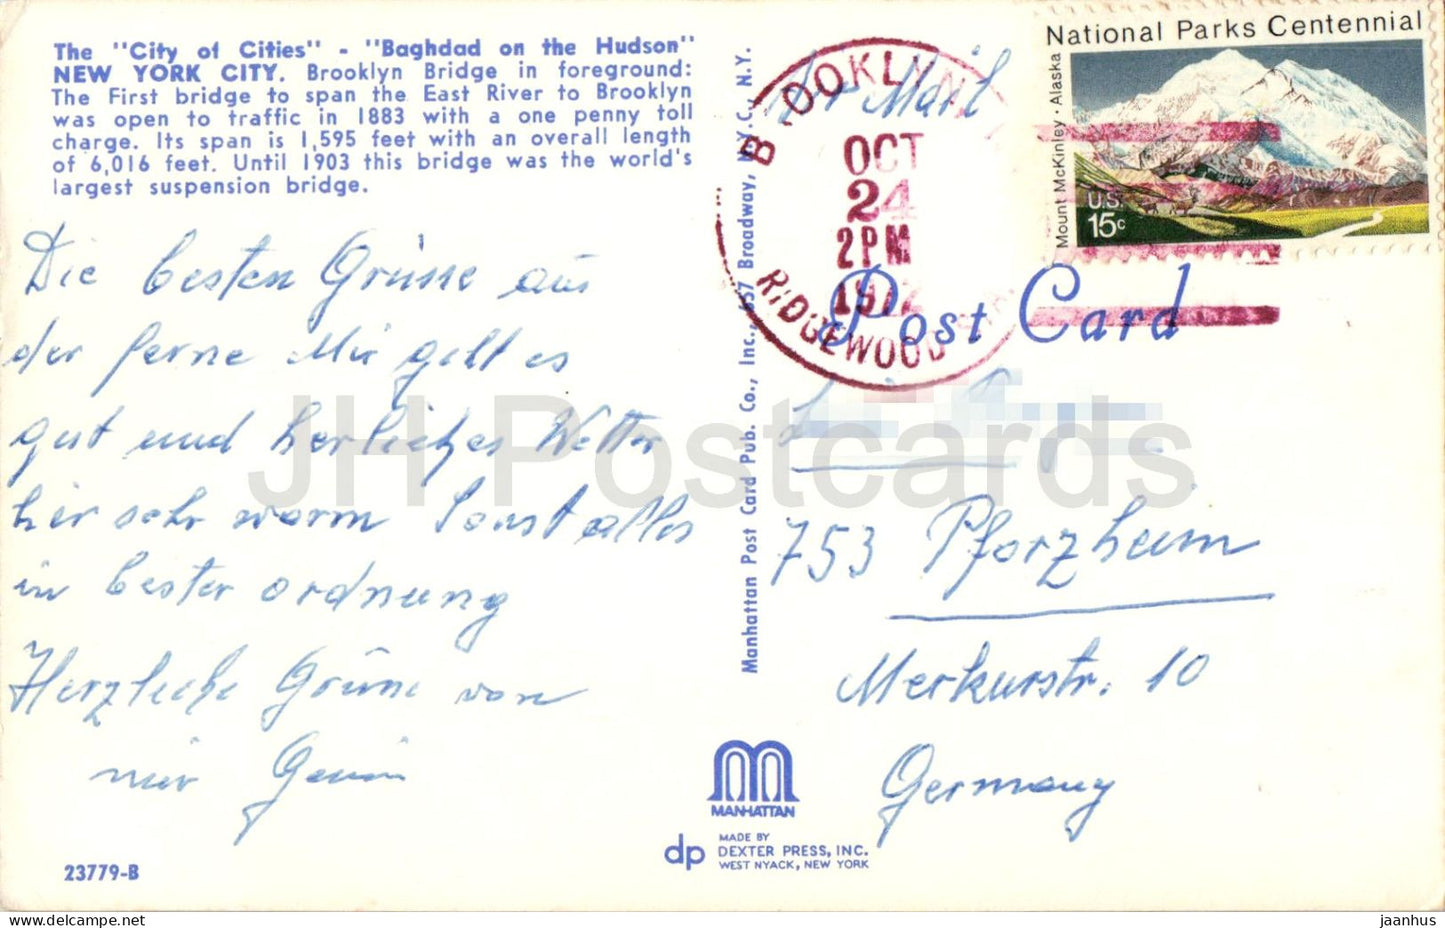 The "City of Cities" - "Baghdad on the Hudson"
NEW YORK CITY. Brooklyn Bridge in foreground:
The First bridge to span the East River to Brooklyn
was open to traffic in 1883 with a one penny toll
charge. Its span is 1,595 feet with an overall length
of 6,016 feet. Until 1903 this bridge was the world's
largest suspension bridge.
Die besten Grüsse aus
der ferne Mir geht es
gut und herrliches Wetter
hier sehr warm Sonst alles
in bester ordnung
Herzliche Grüsse von
mir
23779-B
Manhattan Post Card Pub. Co., Inc., 657 Broadway, N.Y.C., N.Y.
MANHATTAN
dp
MADE BY
DEXTER PRESS, INC.
WEST NYACK, NEW YORK
Air Mail
BROOKLYN
OCT
24
2PM
1972
RIDGEWOOD
National Parks Centennial
Mount McKinley · Alaska
U.S.
15c
Post Card
753 Pforzheim
Merkurstr. 10
Germany
JH Postcards
jaanhus